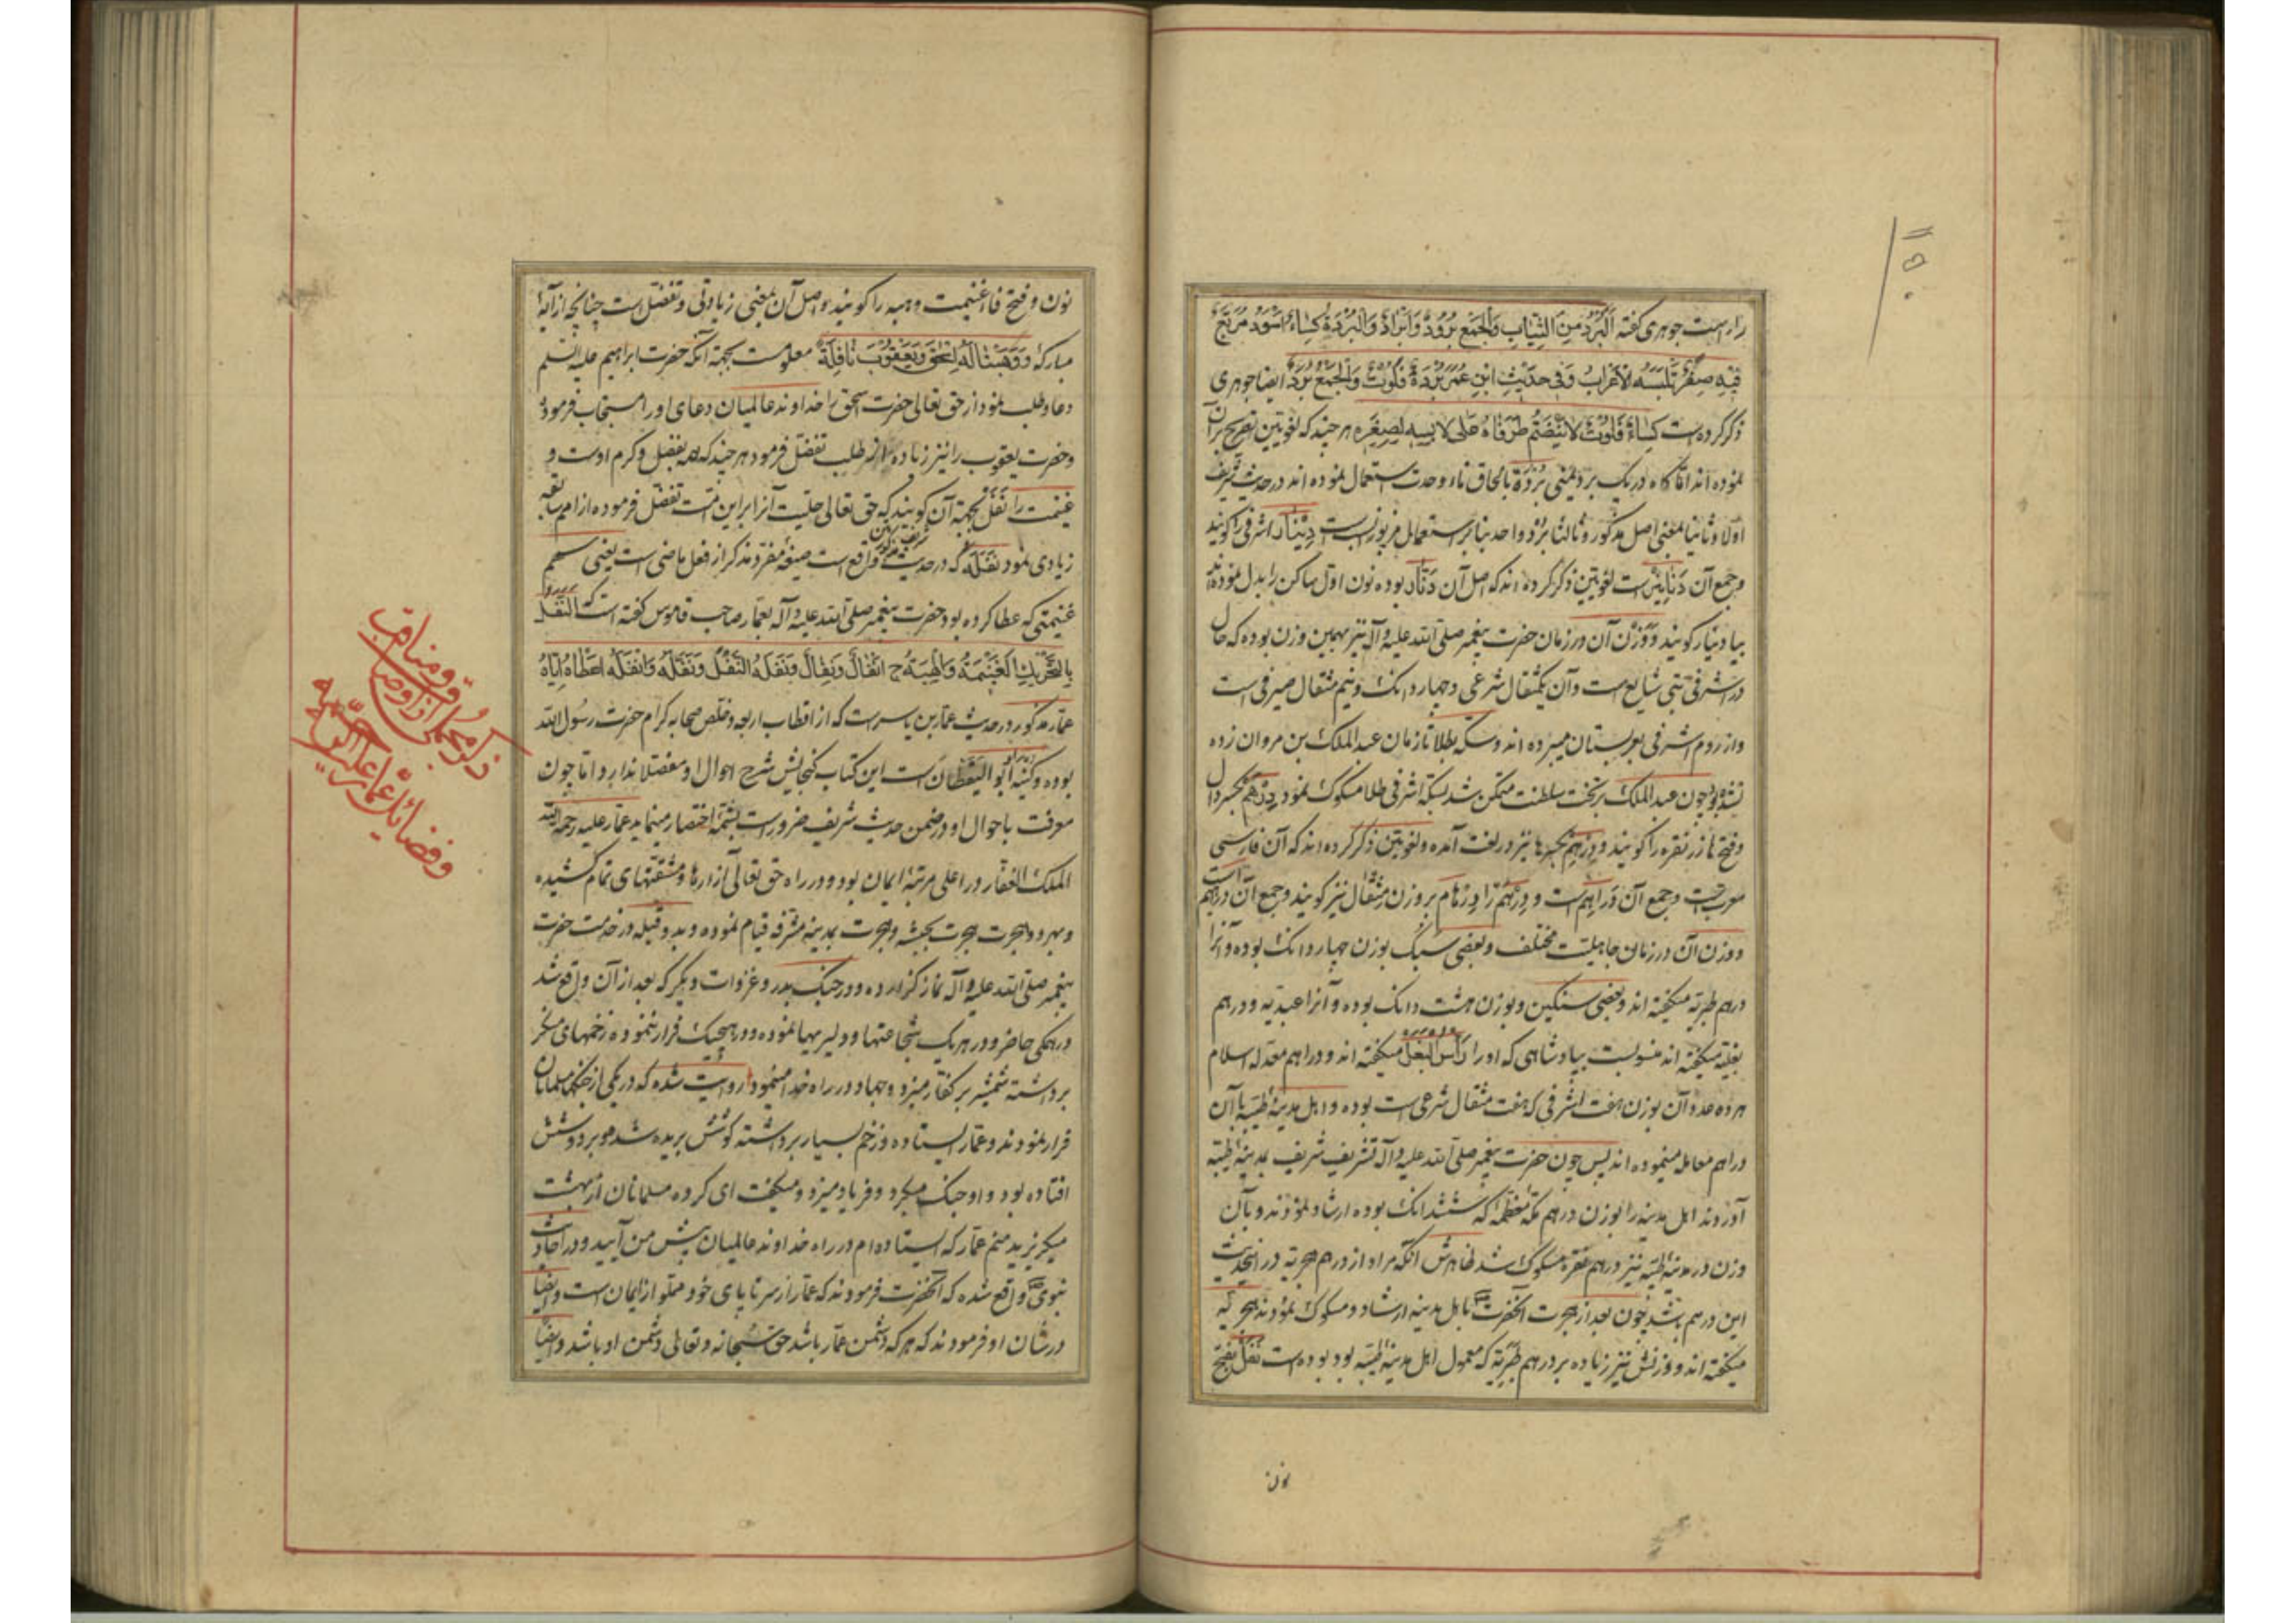 را است جوهری کفته اَلبُرْدُ مِنَ الثِّیَابِ وَالجَمْع بُرُودٌ وَاَبْرَادٌ وَالبُرْدَةُ کِسَاءٌ اَسْوَدُ مُرَبَّعٌ
فِیْهِ صِغَرٌ تَلْبَسُهُ الْاَعْرَابُ وَفِی حَدِیْثِ ابْنِ عُمَرَ بُرْدَةٌ فَلُوْتٌ وَالجَمْعُ بُرَدٌ ایضا جوهری
ذکر کرده است کِسَاءٌ فَلُوْتٌ لَا یَنْضَمُّ طَرَفَاهُ عَلٰی لَابِسِهِ لِصِغَرِهِ هر چند که لغویین تصریح بر آن
نموده اند اما گاه در یک برد یعنی بُرْدَة بالحاق تاء وحدت استعمال نموده اند در حدیث شریف
اولا وثانیا بمعنی اصل مذکور وثالثا بُرْد واحد بنا بر استعمال مزبور است دِیْنَار اشرفی را کویند
وجمع آن دَنَانِیْر است لغویین ذکر کرده اند که اصل آن دِنَّار بوده نون اول ساکن را بدل نموده
بیا دینار کویند وَوَزْن آن در زمان حضرت پیغمبر صلّی الله علیه وآله نیز بهمین وزن بوده که حال
در اشرفی شایع است وآن یکمثقال شرعی وچهار دانک ونیم مثقال صیرفی است
واز روم اشرفی بعربستان میبرده اند وسکه بطلا تا زمان عبد الملک بن مروان زده
نشده بود چون عبد الملک بر تخت سلطنت متمکن شد بسکه اشرفی طلا مسکوک نمود دِرْهَم بکسر دال
وفتح ها زر نقره را کویند ودِرْهِم بکسر ها نیز در لغت آمده ولغویین ذکر کرده اند که آن فارسی
معرب است وجمع آن دَرَاهِم است ودِرْهَم را دِرْهَام بر وزن مِثْقَال نیز کویند وجمع آن دراهیم است
ووزن آن در زمان جاهلیت مختلف وبعضی سبک بوزن چهار دانک بوده وآنرا
دراهم طبریّه میکفته اند وبعضی سنکین وبوزن هشت دانک بوده وآنرا عبدیّه ودرهم
بغلیّه میکفته اند منسوبست بپادشاهی که او را رَاسُ البَغْل میکفته اند ودراهم معدّله اسلام
هر ده عدد آن بوزن هفت اشرفی که هفت مثقال شرعی است بوده واهل مدینهٔ طیّبه با آن
دراهم معامله مینموده اند پس چون حضرت پیغمبر صلّی الله علیه وآله تشریف شریف بمدینهٔ طیّبه
آوردند اهل مدینه را بوزن درهم مکهٔ معظّمه که ششدانک بوده ارشاد نمودند وبآن
وزن در مدینهٔ طیّبه نیز دراهم نقره مسکوک شد ظاهرش آنکه مراد از درهم هجریّه در اینحدیث
این درهم باشد چون بعد از هجرت آنحضرت باهل مدینه ارشاد ومسکوک نمودند هجریّه
میکفته اند ووزنش نیز زیاده بر درهم طبریّه که معمول اهل مدینهٔ طیّبه بود بوده است نَفَل بفتح
نون
نون وفتح فا غنیمت وهبه را کویند واصل آن بمعنی زیادتی وتفضّل است چنانچه از آیهٔ
مبارکهٔ وَوَهَبْنَا لَهُ اِسْحٰقَ وَیَعْقُوْبَ نَافِلَةً معلوم است بجهة آنکه حضرت ابراهیم علیه السلم
دعا وطلب نمود از حق تعالی حضرت اسحق را خداوند عالمیان دعای او را مستجاب فرمود
وحضرت یعقوب را نیز زیاده از طلب تفضّل فرمود هر چند که همه بفضل وکرم اوست و
غنیمت را نَفَل بجهة آن کویند که حق تعالی حلیت آنرا بر این امّت تفضّل فرموده از امم سابقه
زیادی نمود نَفَّلَهُ که در حدیث شریف مذکور واقع است صیغهٔ مفرد مذکر از فعل ماضی است یعنی سهم
غنیمتی که عطا کرده بود حضرت پیغمبر صلّی الله علیه وآله بعمّار صاحب قاموس کفته است که النَّفَلُ
بِالتَّحْرِیْكِ الغَنِیْمَةُ وَالْهِبَةُ ج اَنْفَالٌ وَنِفَالٌ وَنَفَلَهُ النَّفَلَ وَنَفَّلَهُ وَاَنْفَلَهُ اَعْطَاهُ اِیَّاهُ
عمّار مذکور در حدیث عمّار بن یاسر است که از اقطاب اربعه وخلّص صحابه کرام حضرت رسول الله
بوده وکنیهٔ او ابو الیَقْظَان است این کتاب کنجایش شرح احوال او مفصّلا ندارد اما چون
معرفت باحوال او در ضمن حدیث شریف ضرور است بشمّهٔ اختصار مینماید عمّار علیه رحمة الله
الملک الغفّار در اعلی مرتبهٔ ایمان بود ودر راه حق تعالی آزارها ومشقّتهای تمام کشیده
وبهر دو هجرت هجرت بحبشه وهجرت بمدینهٔ مشرّفه قیام نموده وبدو قبله در خدمت حضرت
پیغمبر صلّی الله علیه وآله نماز کزارده ودر جنک بدر وغزوات دیگر که بعد از آن واقع شد
در همکی حاضر ودر هر یک شجاعتها ودلیریها نموده ودر هیچیک فرار ننموده زخمهای منکر
برداشته شمشیر بر کفار میزد وجهاد در راه خدا مینمود روایت شده که در یکی از جنکها مسلمانان
فرار نمودند وعمّار ایستاده وزخم بسیار برداشته کوشش بریده شده وبر دوشش
افتاده بود واو جنک میکرد وفریاد میزد ومیکفت ای کروه مسلمانان از بهشت
میکریزید منم عمّار که ایستاده ام در راه خداوند عالمیان پیش من آیید ودر احادیث
نبوی واقع شده که آنحضرت فرمودند که عمّار از سر تا پای خود مملو از ایمان است وایضا
در شان او فرمودند که هر که دشمن عمّار باشد حق سبحانه وتعالی دشمن او باشد وایضا
ذکر مجملی از اوصاف ومناقب
وفضائل عمّار علیه الرحمه